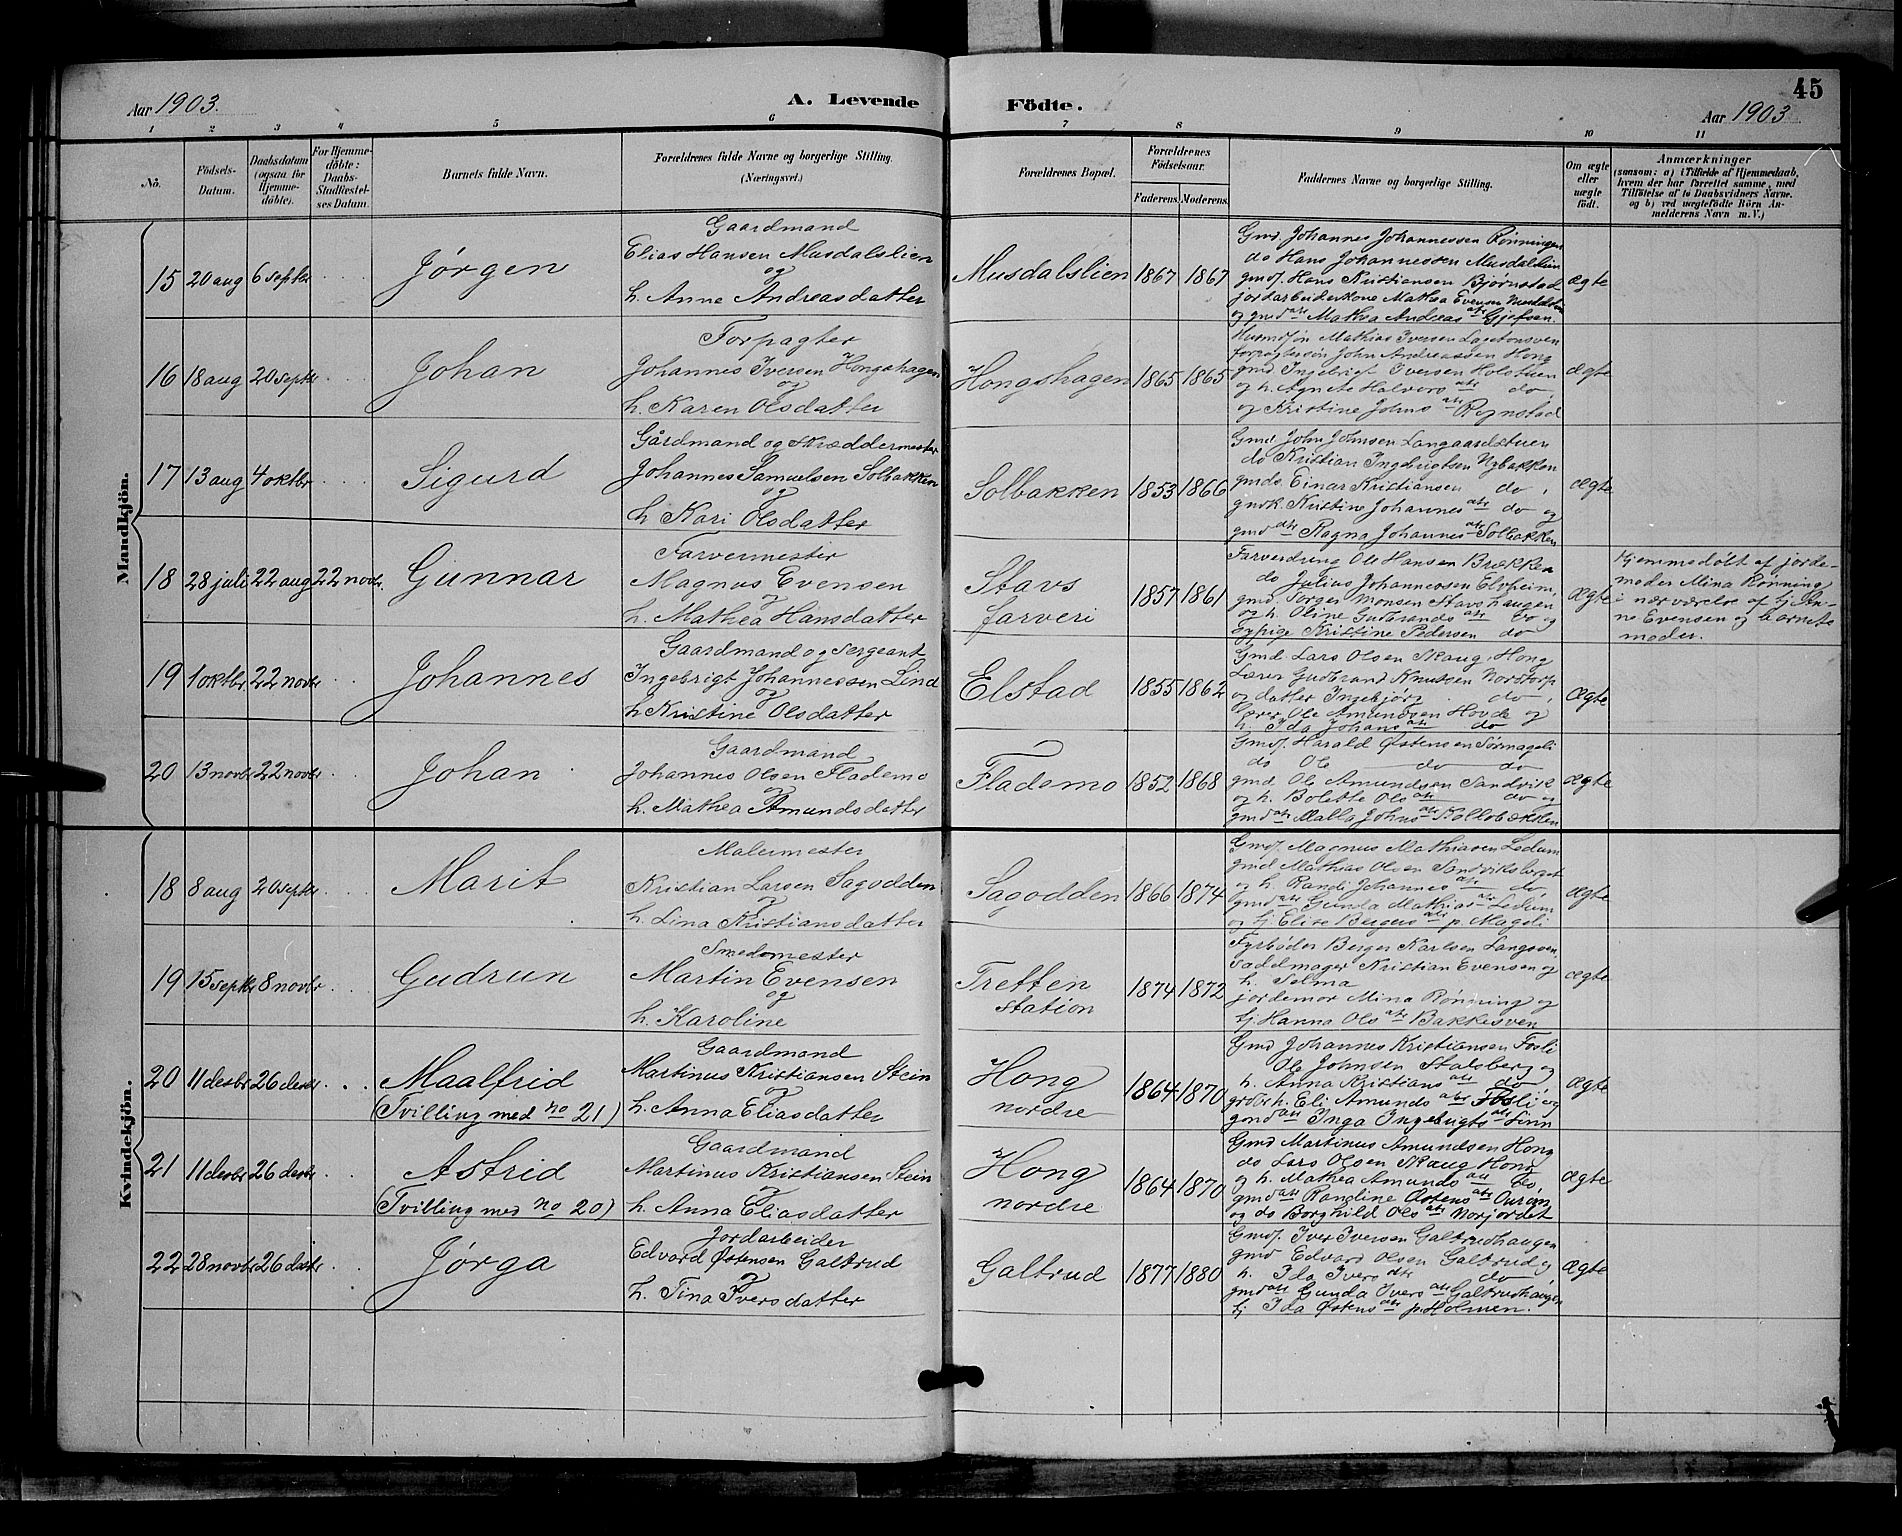 45
Aar 1903.
A. Levende Födte.
Aar 1903
1 2 3 4 5 6 7 8 9 10 11
No.
Födsels-
Datum.
Daabsdatum
(ogsaa for
Hjemme-
döbte).
For Hjemme-
döbte:
Daabs-
Stadfæstel-
ses Datum.
Barnets fulde Navn.
Forældrenes fulde Navne og borgerlige Stilling.
(Næringsvei.)
Forældrenes Bopæl.
Forældrenes
Födselsaar.
Faderens. Moderens.
Faddernes Navne og borgerlige Stilling.
Om ægte
eller
uægte
födt.
Anmærkninger
(saasom: a) i Tilfælde af Hjemmedaab,
hvem der har forrettet samme, med
Tilföielse af to Daabsvidners Navne.
og b) ved uægtefödte Börn An-
melderens Navn m. V.)
Mandkjön.
15 20 aug 6 septbr
Jørgen
Gaardmand
Elias Hansen Musdalslien
og
h. Anne Andreasdatter
Musdalslien 1867 1867
Gmd. Johannes Johannessen Rønningen
do Hans Johannessen Musdalslien
gmdf. Hans Kristiansen Bjørnstad
jordarbeiderkone Mathea Evensen Musdalslien
og gmd dtr Mathea Andreas dtr Gjefsen.
ægte
16 18 aug 20 septbr
Johan
Forpagter
Johannes Iversen Hongshagen
og
h. Karen Olsdatter
Hongshagen 1865 1865
Mathias Iversen
forpagtersøn John Andreassen Hong
gmd Ingebrigt Iversen Holstuen
og h. Agnete Halvors dtr do
og Kristine Johns dtr Rynstad
ægte
17 13 aug 4 oktbr
Sigurd
Gårdmand og Skræddermester
Johannes Samuelsen Solbakken
og
h Kari Olsdatter
Solbakken 1853 1866
Gmd. John Johnsen Langaardstuen
do Kristian Ingebrigtsen Nybakken
gmds. Einar Kristiansen do,
gmdk. Kristine Johannes dtr do og
gmd dtr Ragna Johannes dtr Solbakken
ægte
18 28 juli 22 aug 22 novbr.
Gunnar
Farvermester
Magnus Evensen
og
h. Mathea Hansdatter
Stavs
farveri
1857 1861
Farverdreng Ole Hansen Brækken
do Julius Johannessen Elvheim,
gmd. Torger Monsen Stavshaugen
og h. Oline Gudbrands dtr do og
Kristine Pedersen do
ægte
Hjemmedøbt af jorde-
moder Mina Rønning
i nærværelse af tj. An-
ne Evensen og barnets
moder.
19 1 oktbr 22 novbr
Johannes
Gaardmand og sergeant
Ingebrigt Johannessen Lind
og
h Kristine Olsdatter
Elstad 1855 1862
Gmd. Lars Olsen Skaug, Hong
Lærer Gudbrand Knutsen Nordtorp
og datter Ingebjørg do,
Lærer Ole Amundsen Hovde og
h. Ida Johans dtr do
Ægte
20 13 novbr 22 novbr
Johan
Gaardmand
Johannes Olsen Flademo
og
h. Mathea Amundsdatter
Flademo 1852 1868
Gmdf. Harald Østensen Sørmageli
do Ole do do
gmd Ole Amundsen Sandvik
og h. Bolette Ols dtr do og
gmd dtr Malla Johns dtr Kalkobækken
ægte
Kvindekjön.
18 8 aug 20 septbr
Marit
Malermester
Kristian Larsen Sagodden
og
h. Lina Kristiansdatter
Sagodden 1866 1874
Gmdf. Magnus Mathiasen Ledum
gmd Mathias Olsen Sandviksberget
og h. Randi Johannes dtr do,
gmd dtr Gunda Mathias dtr Ledum
og tj Elise Bergers dtr p. Mageli
ægte
19 15 septbr 8 novbr
Gudrun
Smedemester
Martin Evensen
og
h. Karoline
Tretten
station
1874 1872
Fyrbøder Berger Karlsen Langsven,
sadelmager Kristian Evensen og
h. Selma
jordemor Mina Rønning og
tj. Hanna Ols dtr Bakkesven
ægte
20 11 desbr 26 desbr
Maalfrid
(Tvilling med no 21)
Gaardmand
Martinus Kristiansen Stein
og
h. Anna Eliasdatter
Hong
nordre
1864 1870
Gmd Johannes Kristiansen Fosli
Ole Johnsen Stalsberg og
h. Anna Kristians dtr do,
h. Eli Amunds dtr Fosli, og
gmd dtr Inga Ingebrigts dtr Linn
Ægte
21 11 desbr 26 desbr
Astrid
(Tvilling med no 20)
Gaardmand
Martinus Kristiansen Stein
og
h. Anna Eliasdatter
Hong
nordre
1864 1870
Gmd Martinus Amundsen Hong
do Lars Olsen Skaug Hong
og h. Mathea Amunds dtr do,
gmd dtr Rangline Østens dtr
og do Borghild Ols dtr Norjordet
ægte
22 28 novbr 26 desbr
Jørga
Jordarbeider
Edvard Østensen Galtrud
og
h. Tina Iversdatter
Galtrud 1877 1880
Gmdf. Iver Iversen Galtrudhaugen
gmd Edvard Olsen Galtrud og
h. Ida Ivers dtr do,
gmd dtr Gunda Ivers dtr Galtrudhaugen
tj Ida Østens dtr p. Holmen.
Ægte